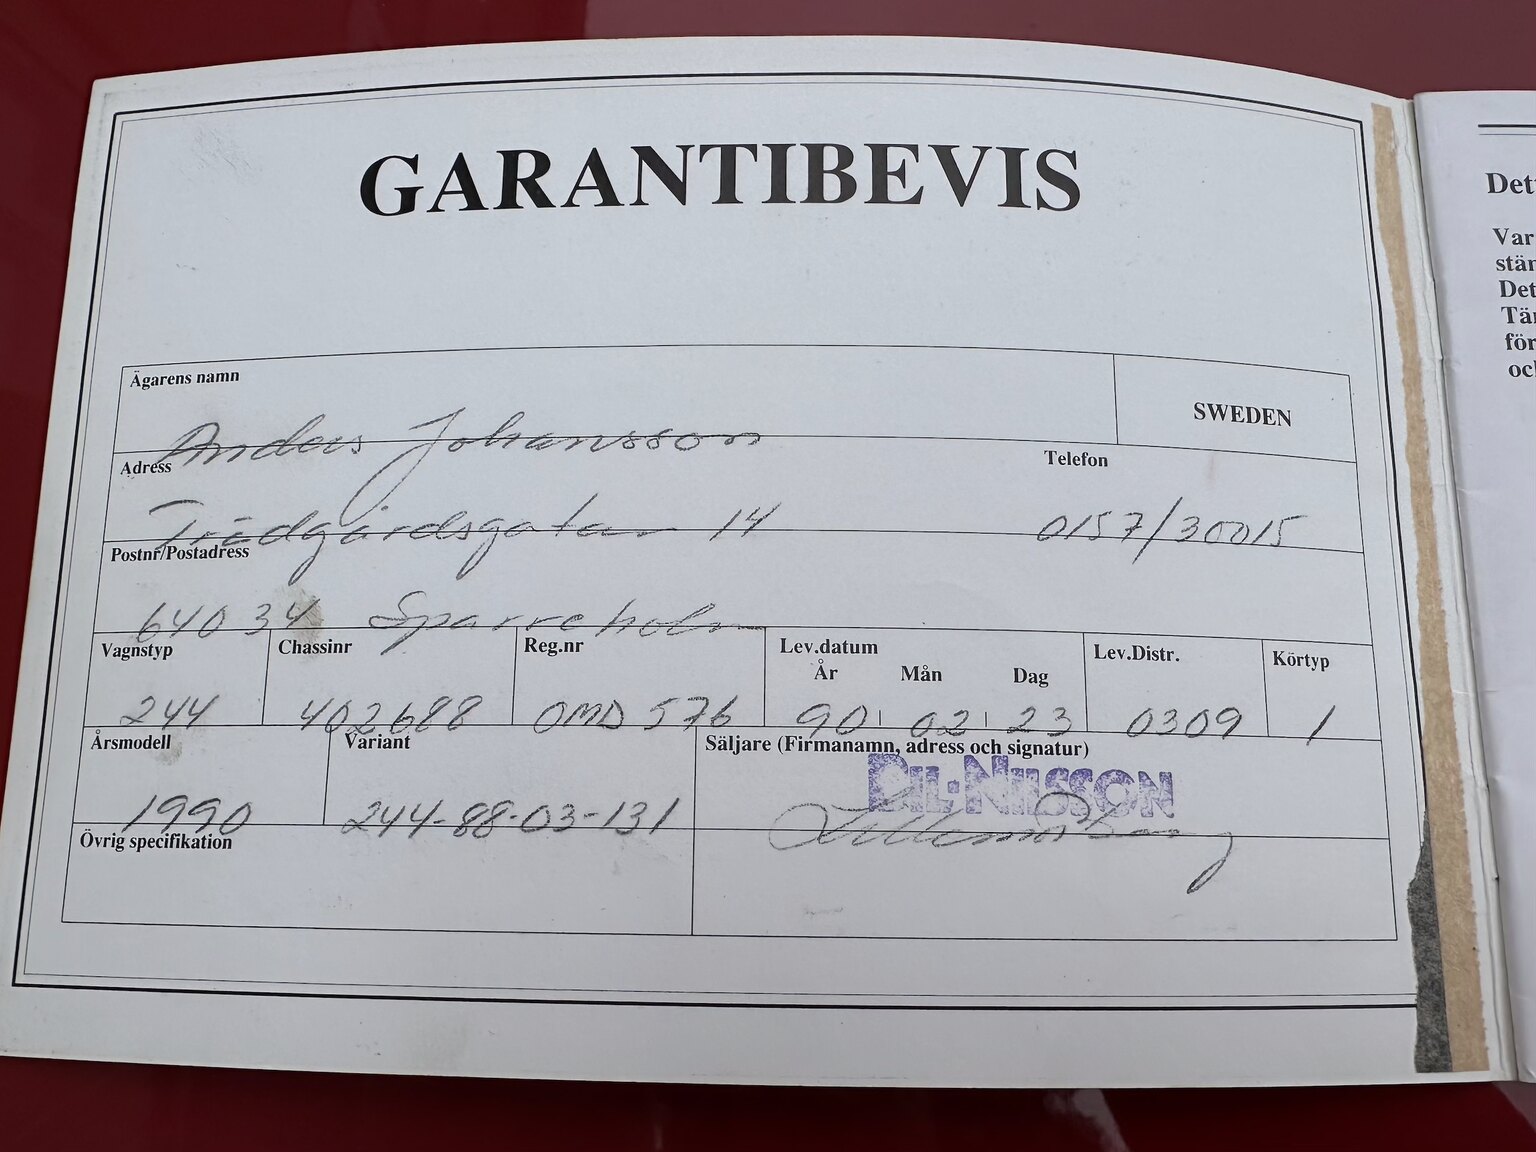 GARANTIBEVIS
Ägarens namn
Anders Johansson
SWEDEN
Adress
Telefon
Trädgårdsgatan 14
0157/30015
Postnr/Postadress
640 34 Sparreholm
Vagnstyp
Chassinr
Reg.nr
Lev.datum
År Mån Dag
Lev.Distr.
Körtyp
244
402688
OMD 576
90 02 23
0309
1
Årsmodell
Variant
Säljare (Firmanamn, adress och signatur)
BIL-NILSSON
1990
244-88-03-131
Övrig specifikation
Det
Var
stän
Det
Tän
för
och